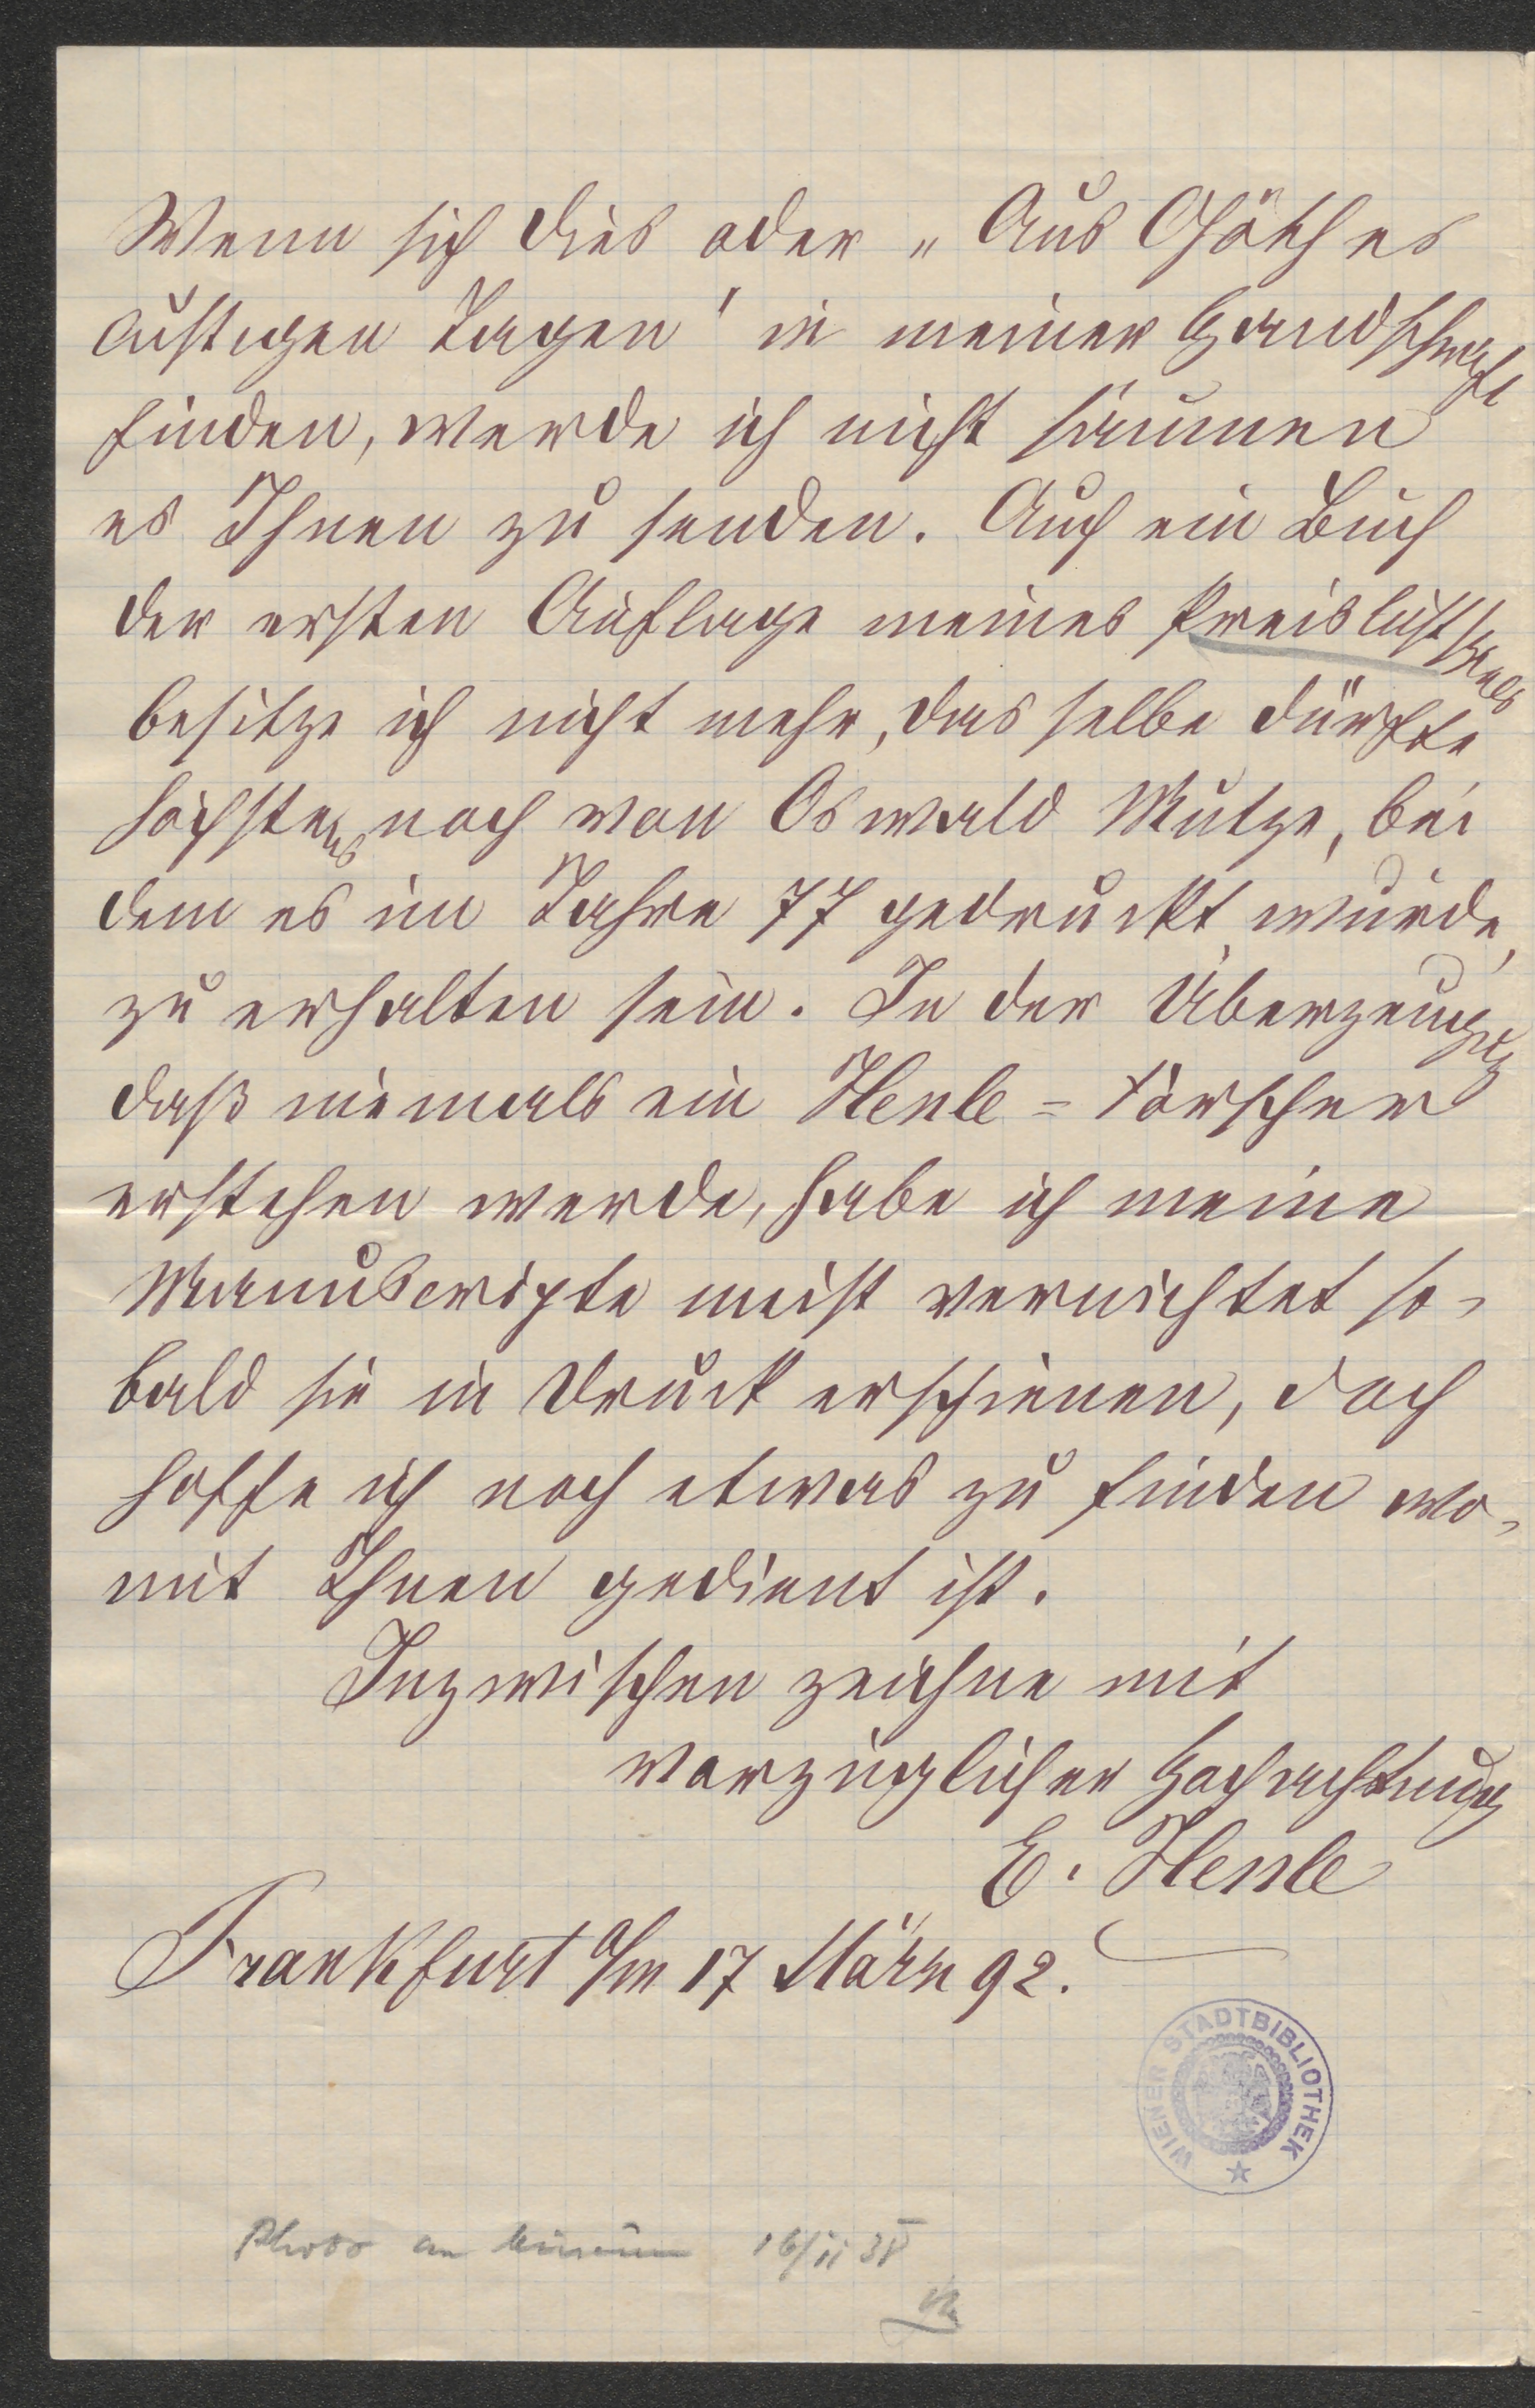 Wenn sich dies oder „Aus Göthes
lustigen Tagen" in meiner Handschrift
finden, werde ich nicht säumen
es Ihnen zu senden. Auch ein Buch
der ersten Auflage meines Preislustspiels
besitze ich nicht mehr, das selbe dürfte
höchstens noch von Oswald Mutze, bei
dem es im Jahre 77 gedruckt wurde,
zu erhalten sein. In der Überzeugung
daß niemals ein Henle-Forscher
erstehen werde, habe ich meine
Manuscripte meist vernichtet so-
bald sie in Druck erschienen, doch
hoffe ich noch etwas zu finden wo-
mit Ihnen gedient ist.
Inzwischen zeichne mit
vorzüglicher Hochachtung
E. Henle
Frankfurt a/m 17 März 92.
WIENER STADTBIBLIOTHEK
Photo an Museum 16/II 38